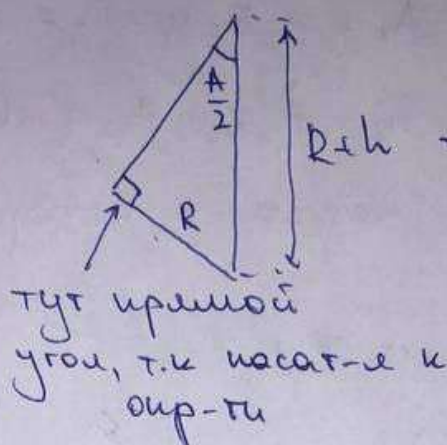 A
2
R+h
R
тут прямой
угол, т.к касат-я к
окр-ти